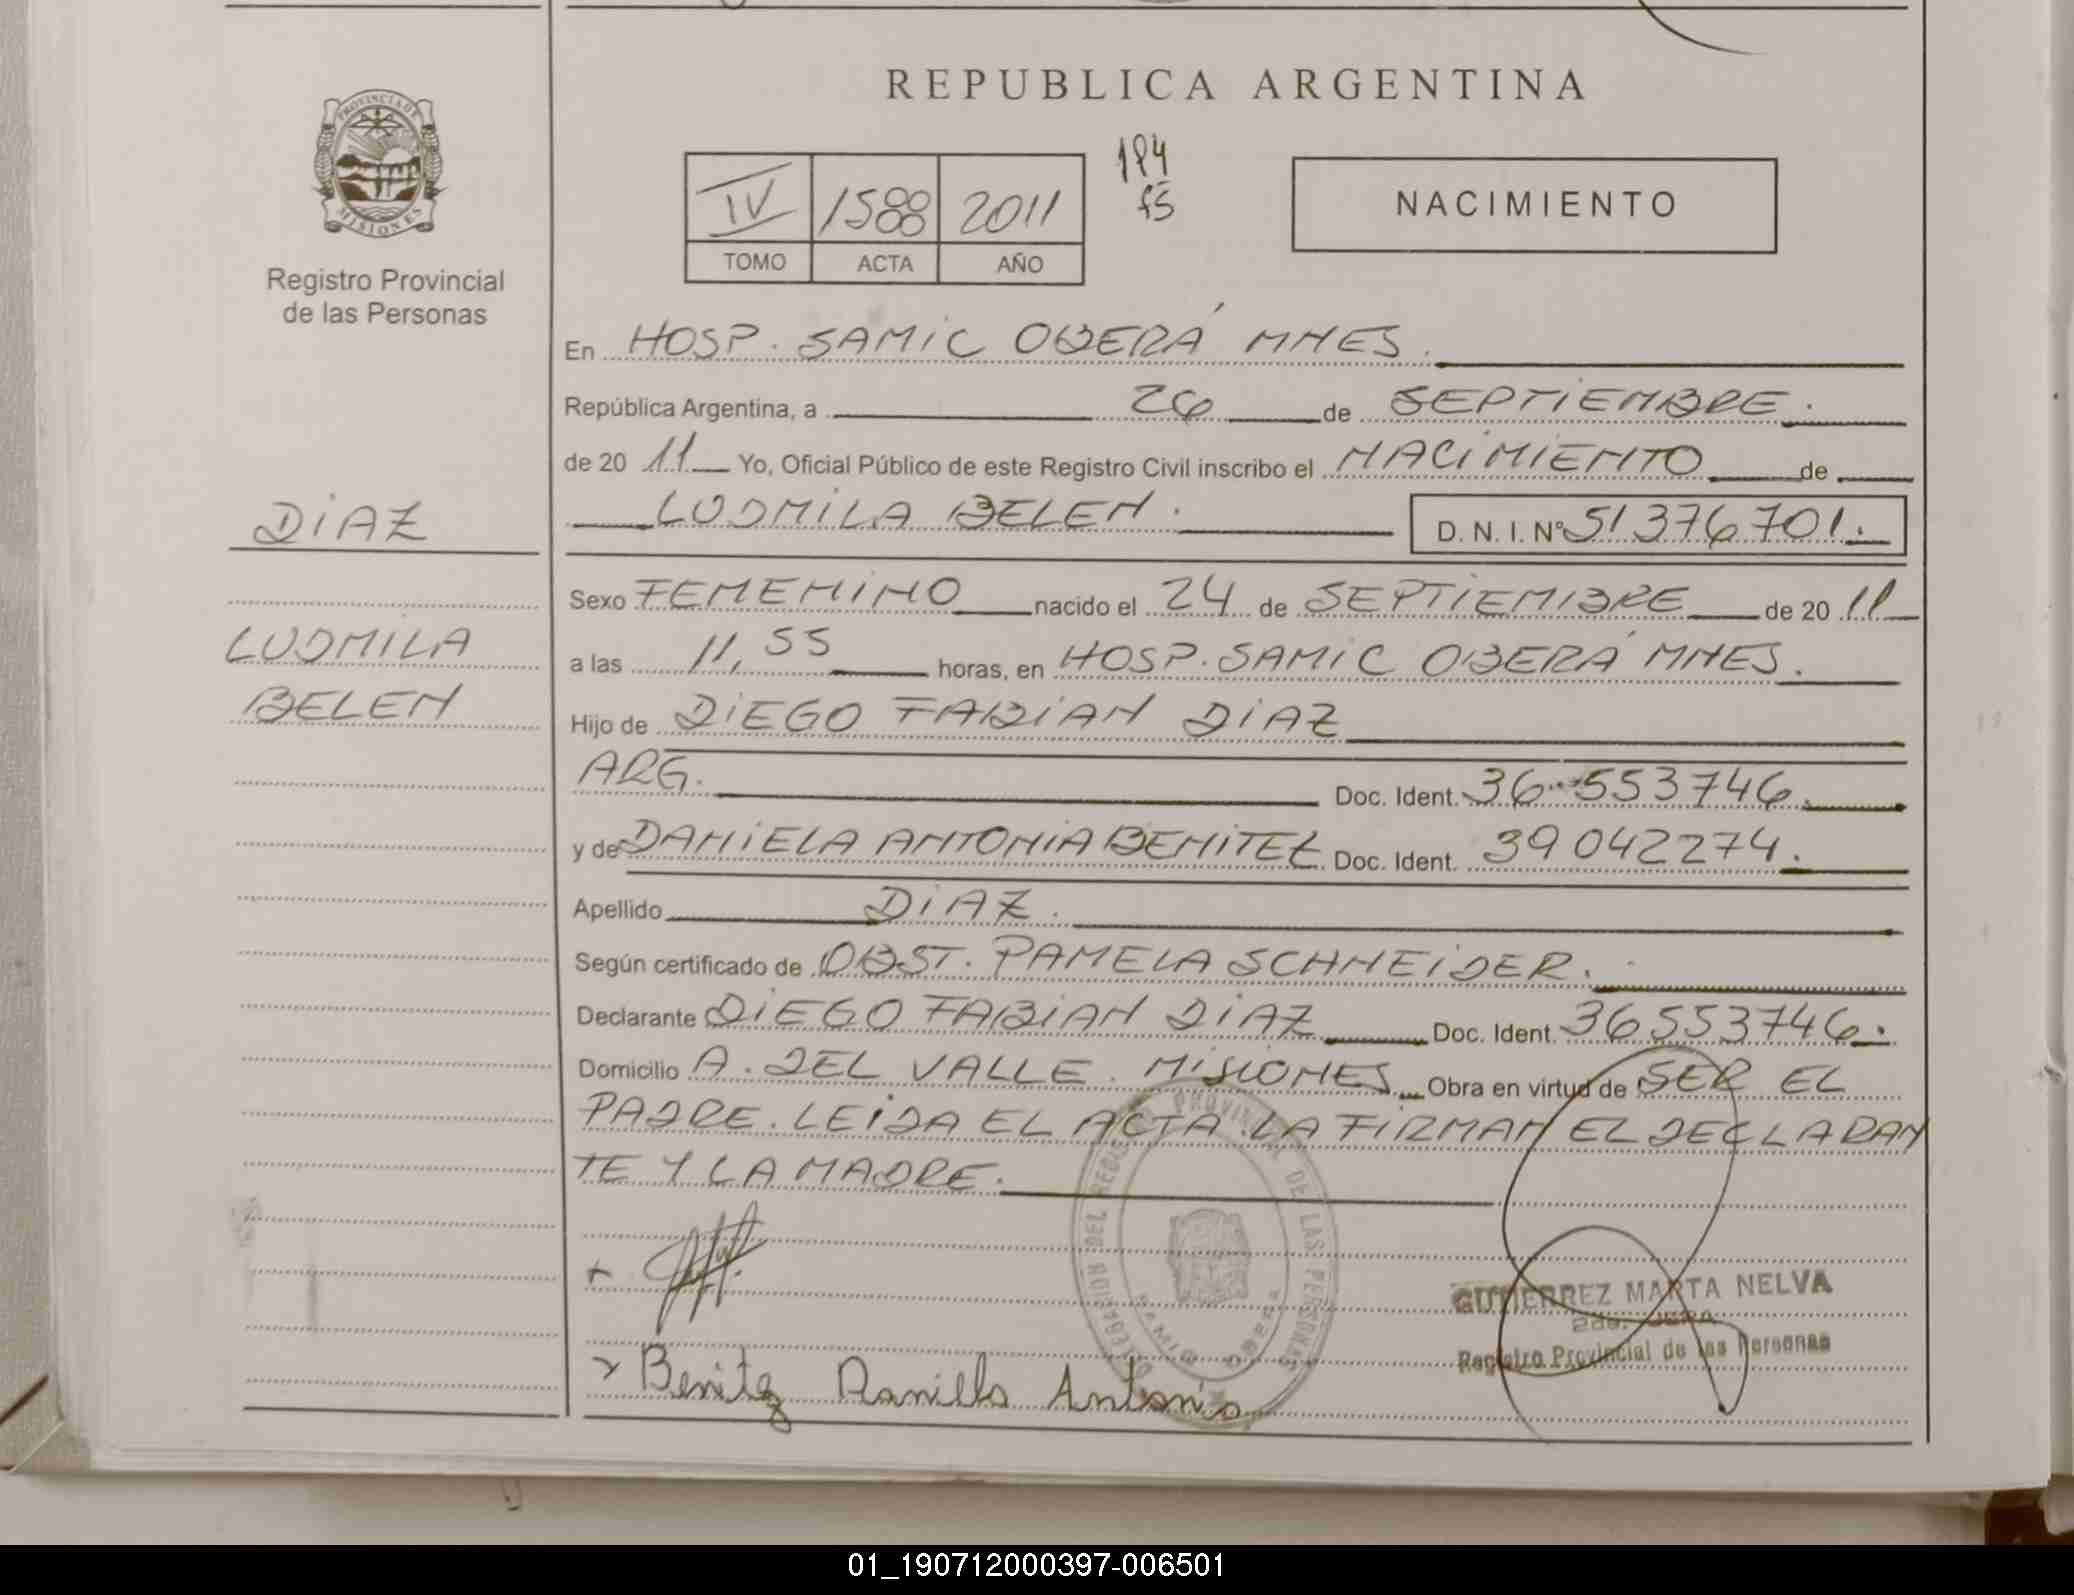 REPUBLICA ARGENTINA
PROVINCIA DE
MISIONES
Registro Provincial
de las Personas
IV 1588 2011
TOMO ACTA AÑO
NACIMIENTO
En HOSP. SAMIC OBERÁ MNES.
República Argentina, a 26 de SEPTIEMBRE.
de 20 11 Yo, Oficial Público de este Registro Civil inscribo el NACIMIENTO de
LUDMILA BELEN. D. N. I. Nº 51376701.
DIAZ
LUDMILA
BELEN
Sexo FEMENINO nacido el 24 de SEPTIEMBRE de 20 11
a las 11,55 horas, en HOSP. SAMIC OBERÁ MNES.
Hijo de DIEGO FABIAN DIAZ
ARG. Doc. Ident. 36.553746.
y de DANIELA ANTONIA BENITEZ Doc. Ident. 39042274.
Apellido DIAZ.
Según certificado de OBST. PAMELA SCHNEIDER.
Declarante DIEGO FABIAN DIAZ Doc. Ident. 36553746.
Domicilio A. DEL VALLE. MISIONES Obra en virtud de SER EL
PADRE. LEIDA EL ACTA LA FIRMAN EL DECLARAN
TE Y LA MADRE.
REGISTRO PROVINCIAL DE LAS PERSONAS
SAMIC OBERA
GUTIERREZ MARTA NELVA
Registro Provincial de las Personas
Benitez Daniela Antonia
01_190712000397-006501